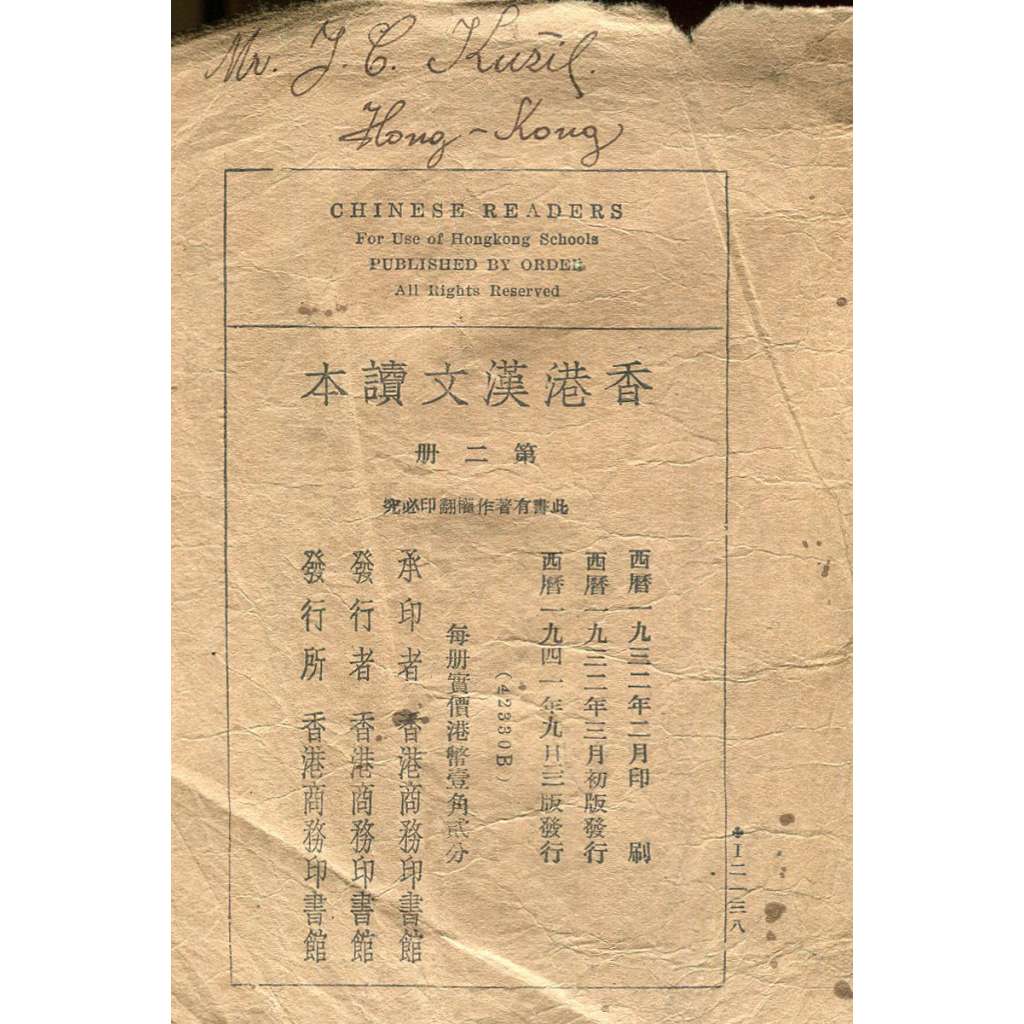 Mr. J. C. Kužil.
Hong-Kong
CHINESE READERS
For Use of Hongkong Schools
PUBLISHED BY ORDER
All Rights Reserved
香港漢文讀本
第二册
此書有著作權翻印必究
西曆一九三二年二月印刷
西曆一九三二年三月初版發行
西曆一九四一年九月三版發行
(42330B)
每册實價港幣壹角貳分
承印者 香港商務印書館
發行者 香港商務印書館
發行所 香港商務印書館